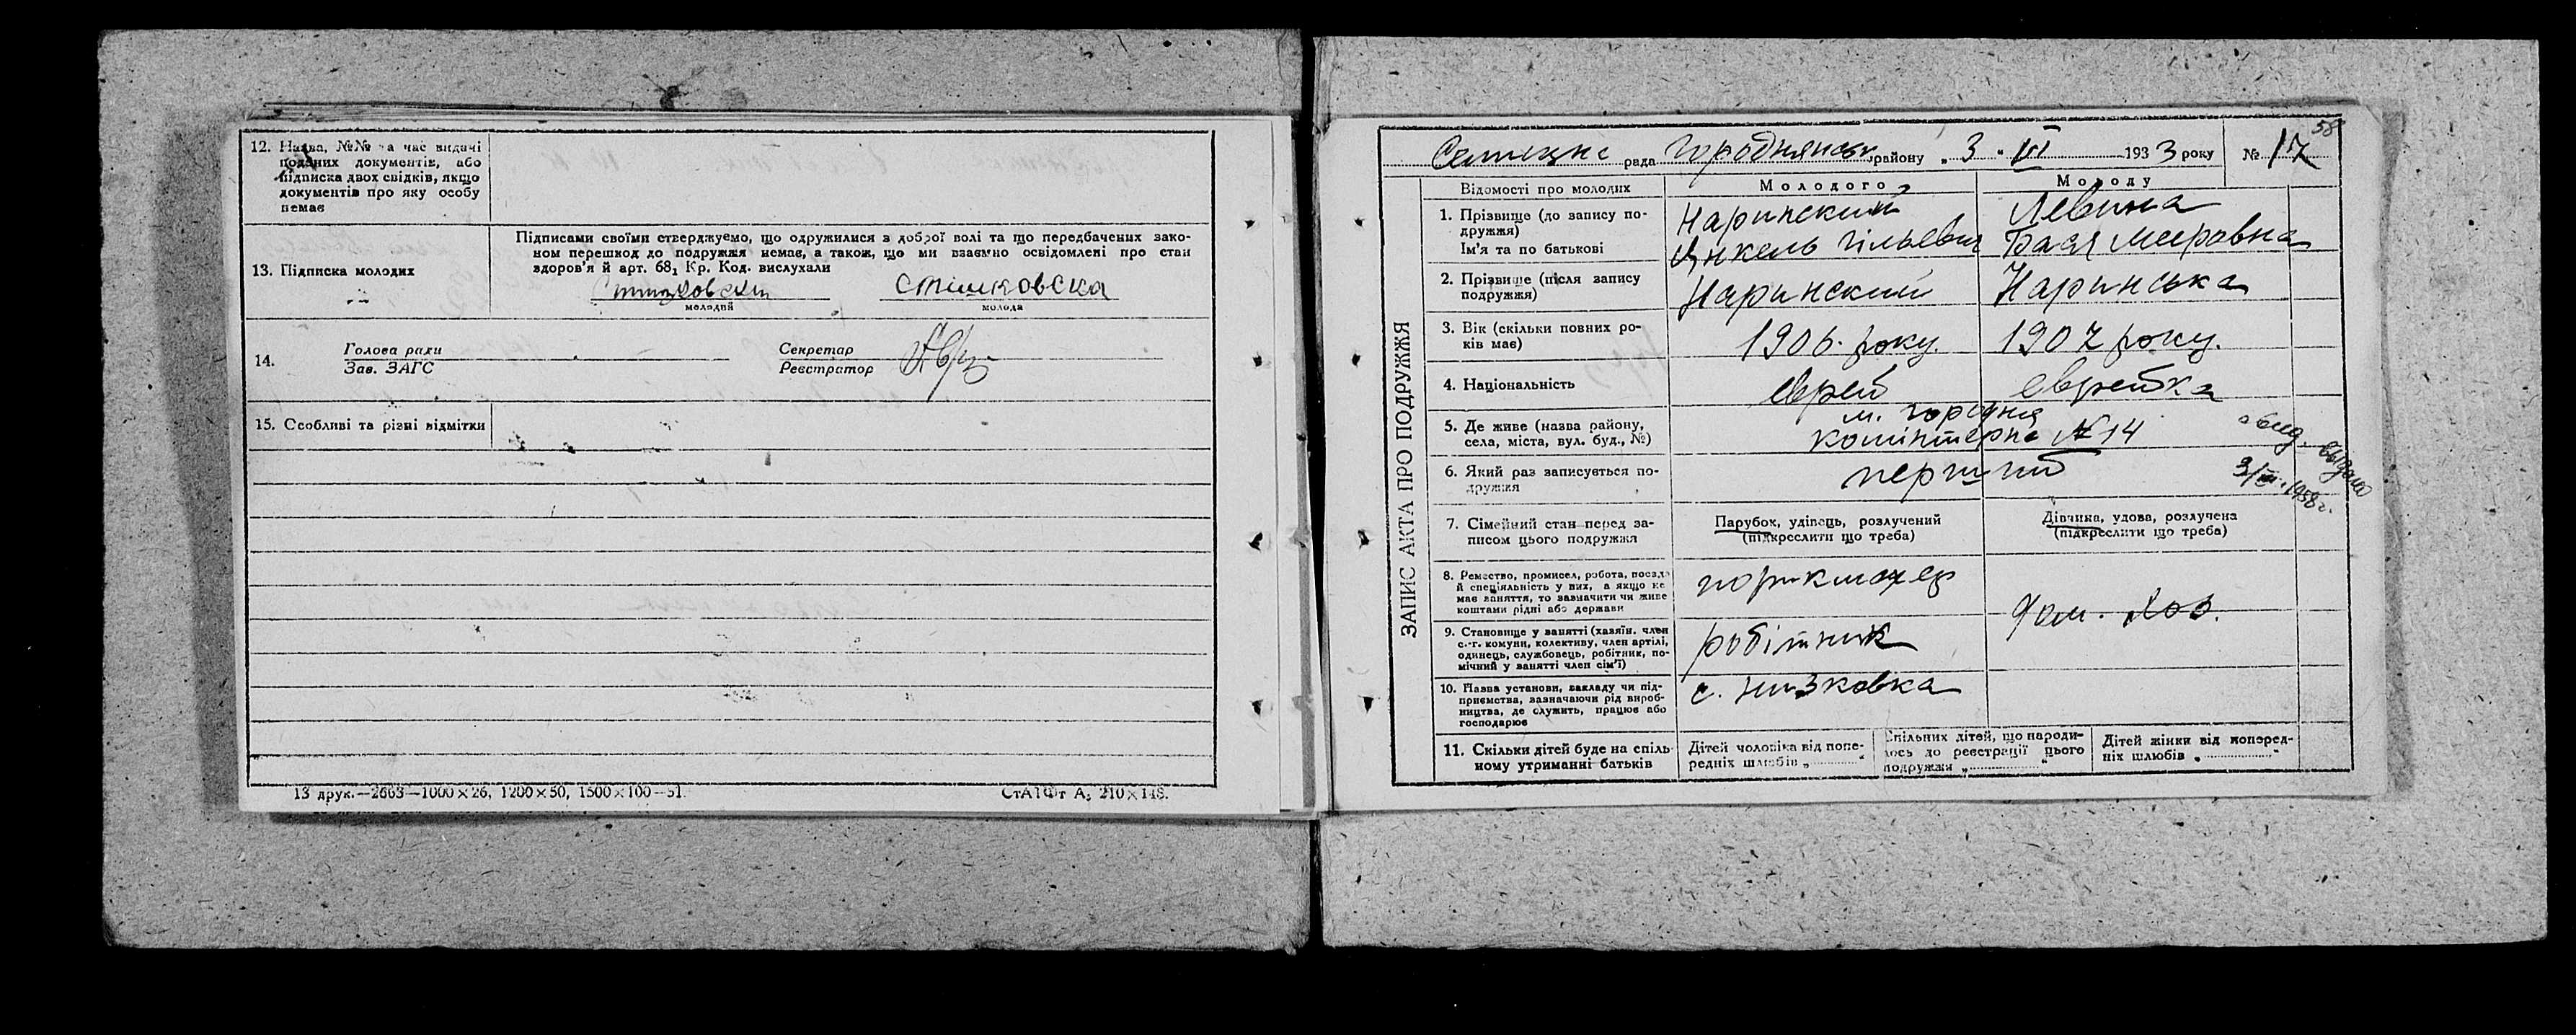 12. Назва, №№ та час видачі
поданих документів, або
підписка двох свідків, якщо
документів про яку особу
немає
13. Підписка молодих
Підписами своїми стверджуємо, що одружилися з доброї волі та що передбачених зако-
ном перешкод до подружжя немає, а також, що ми взаємно освідомлені про стан
здоров'я й арт. 68₁ Кр. Код. вислухали
стишковска
молодий
молода
14.
Голова ради
Зав. ЗАГС
Секретар
Реєстратор
15. Особливі та різні відмітки
13 друк.—2663—1000×26, 1200×50, 1500×100—51.
СтАТФт А₅ 210×148.
58
рада Городнянськ району „ 3 " VI 1933 року № 17
ЗАПИС АКТА ПРО ПОДРУЖЖЯ
Відомості про молодих
Молодого
Молоду
1. Прізвище (до запису по-
дружжя)
Ім'я та по батькові
Наринский
Цнкель Гільевич
Левина
Бася Меировна
2. Прізвище (після запису
подружжя)
Наринский
Наринська
3. Вік (скільки повних ро-
ків має)
1906. року.
1907 року.
4. Національність
еврей
еврейка
5. Де живе (назва району,
села, міста, вул. буд., №)
м. городня
комінтерна № 14
6. Який раз записується по-
дружжя
перший
выдано
3/III. 1958 г.
7. Сімейний стан перед за-
писом цього подружжя
Парубок, удівець, розлучений
(підкреслити що треба)
Дівчина, удова, розлучена
(підкреслити що треба)
8. Ремество, промисел, робота, посада
й спеціяльність у них, а якщо не
має заняття, то зазначити чи живе
коштами рідні або держави
парикмахер
дом. хоз.
9. Становище у занятті (хазяїн, член
с.-г. комуни, колективу, член артілі,
одинець, службовець, робітник, по-
мічний у занятті член сім'ї)
робітник
10. Назва установи, закладу чи під-
приємства, зазначаючи рід вироб-
ництва, де служить, працює або
господарює
с. Низковка
11. Скільки дітей буде на спіль-
ному утриманні батьків
Дітей чоловіка від попе-
редніх шлюбів „ "
Спільних дітей, що народи-
лось до реєстрації цього
подружжя „ "
Дітей жінки від поперед-
ніх шлюбів „ "